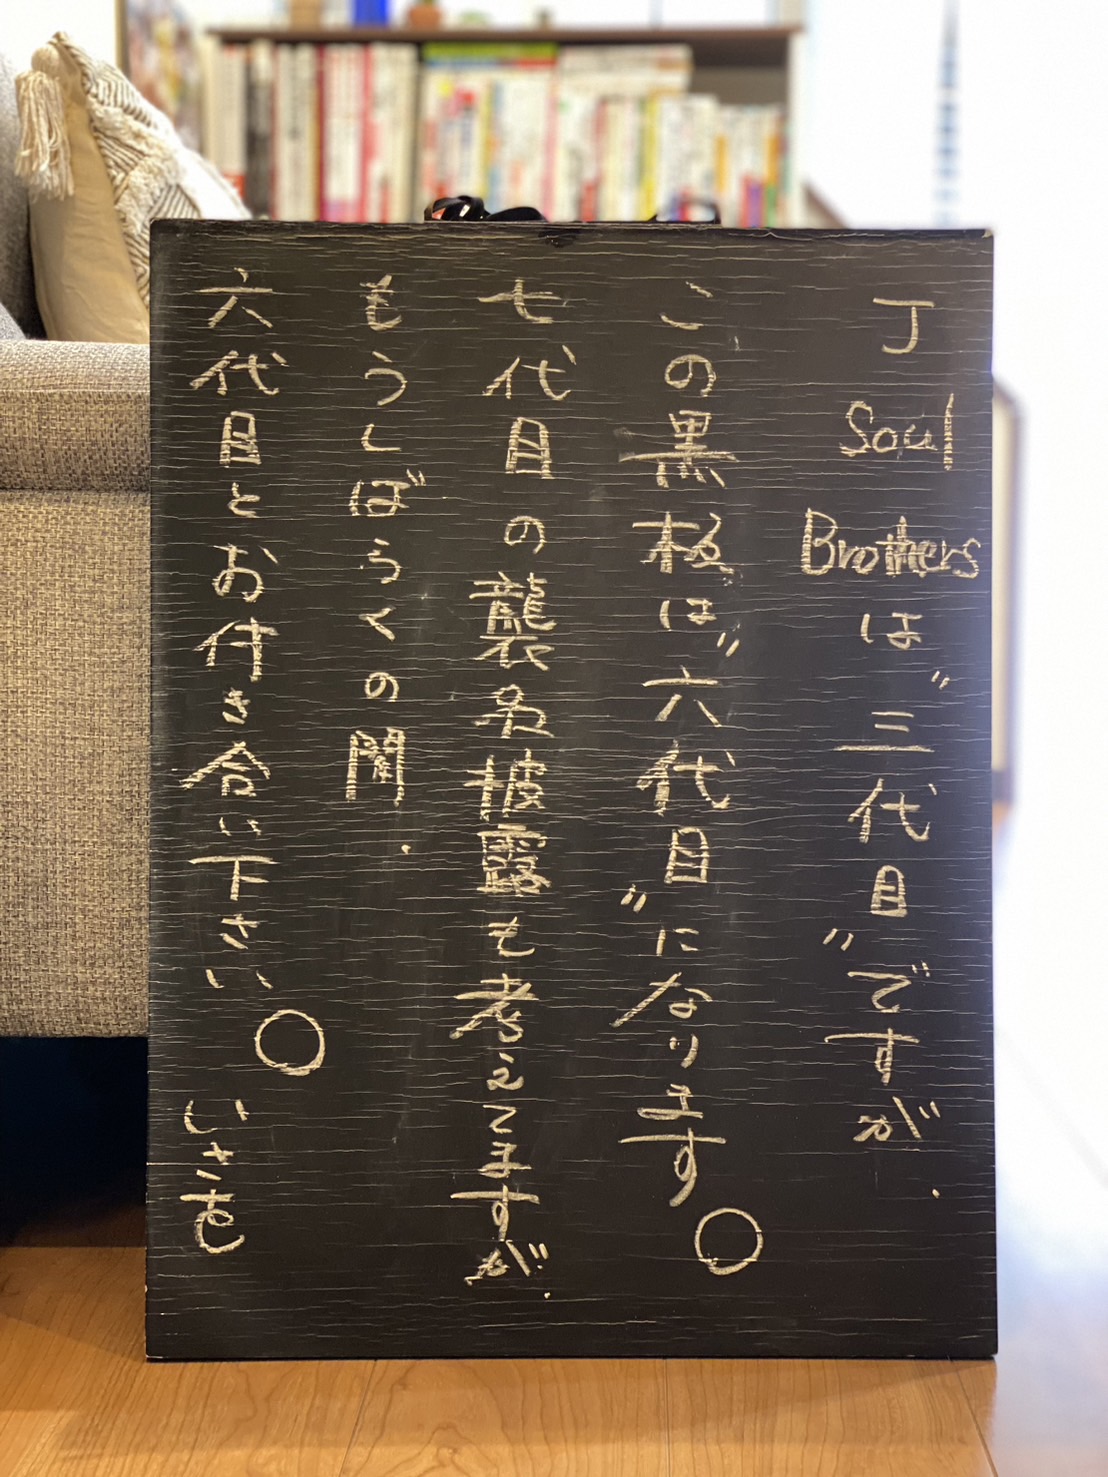 J Soul Brothersは〝三代目〟ですが、
この黒板は〝六代目〟になります。
七代目の襲名披露も考えてますが、
もうしばらくの間、
六代目とお付き合い下さい。いさを